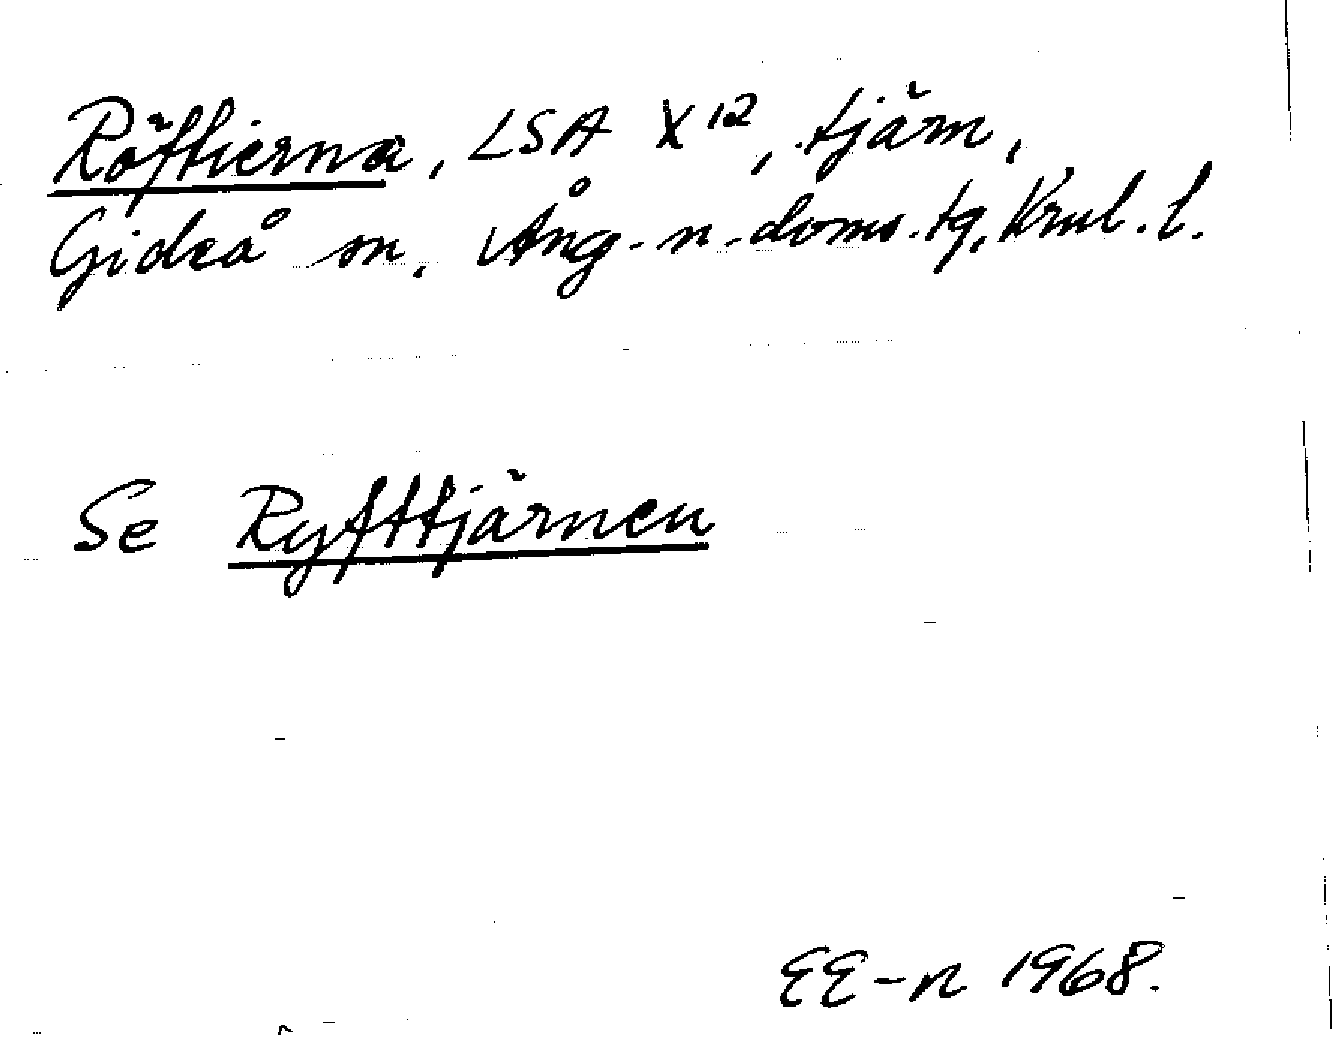 Röftierna, LSA X 12, tjärn,
Gideå sn. Ång. n. doms. tg, Vrnl. l.
Se Ryfttjärnen
EE-n 1968.